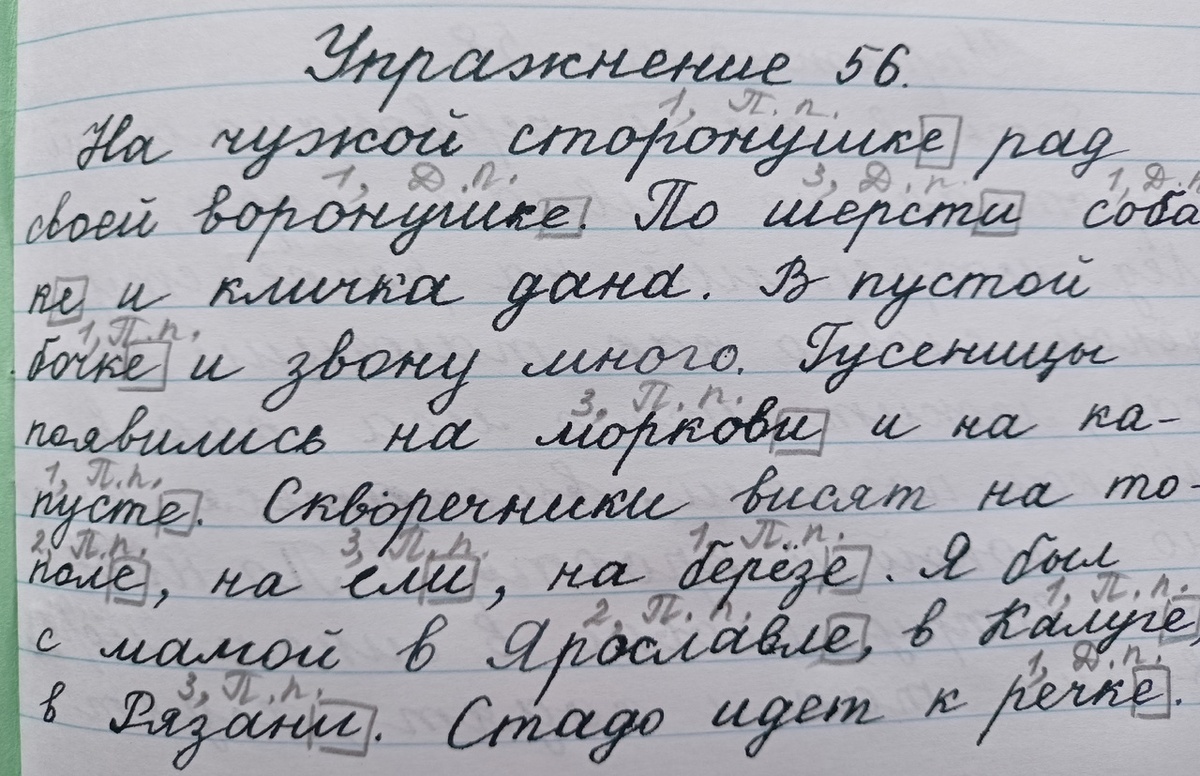 Упражнение 56.
1, П. п.
На чужой сторонушке рад
1, Д. п. 3, Д. п. 1, Д. п
своей воронушке. По шерсти соба
ке и кличка дана. В пустой
1, П. п.
бочке и звону много. Гусеницы
3, П. п.
появились на моркови и на ка-
1, П. п.
пусте. Скворечники висят на то-
2, П. п. 3, П. п. 1, П. п.
поле, на ели, на берёзе. Я был
2, П. п. 1, П. п.
с мамой в Ярославле, в Калуге,
3, П. п. 1, Д. п.
в Рязани. Стадо идет к речке.